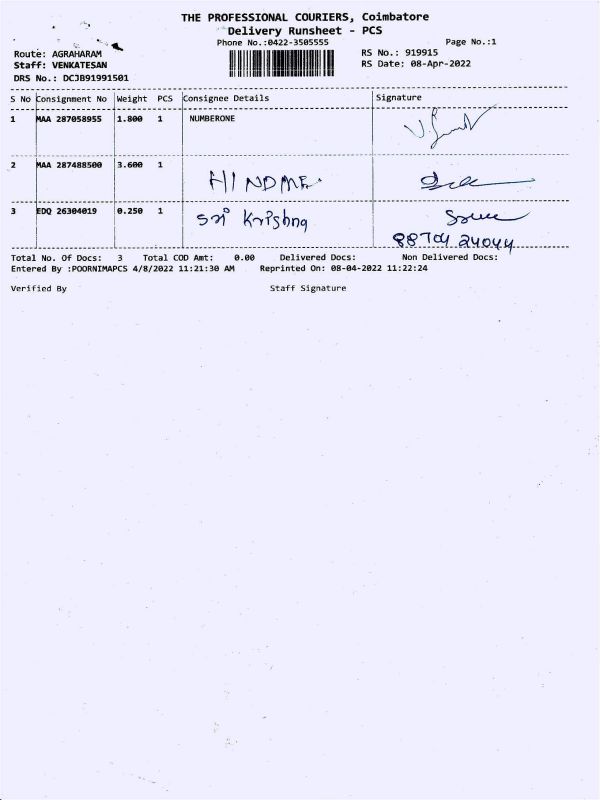 THE PROFESSIONAL COURIERS, Coimbatore
Delivery Runsheet - PCS
Phone No.:0422-3505555 Page No.:1
Route: AGRAHARAM RS No.: 919915
Staff: VENKATESAN RS Date: 08-Apr-2022
DRS No.: DCJB91991501
S No Consignment No Weight PCS Consignee Details Signature
1 MAA 287058955 1.800 1 NUMBERONE
2 MAA 287488500 3.600 1
3 EDQ 26304019 0.250 1 Sri Krishna
88704 24044
Total No. Of Docs: 3 Total COD Amt: 0.00 Delivered Docs: Non Delivered Docs:
Entered By :POORNIMAPCS 4/8/2022 11:21:30 AM Reprinted On: 08-04-2022 11:22:24
Verified By Staff Signature